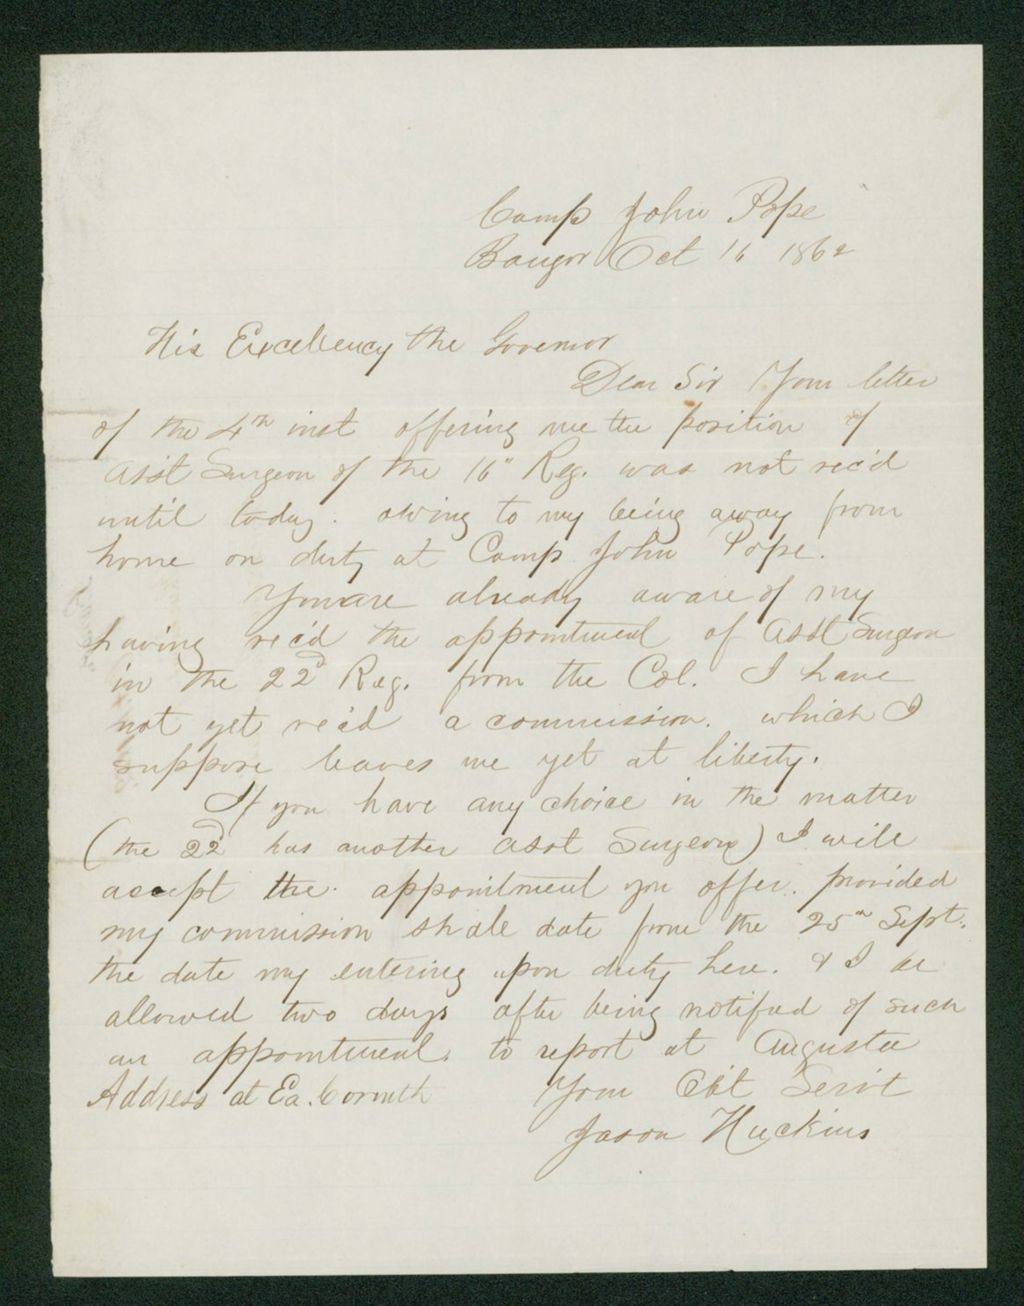 Camp John Pope
Bangor Oct 16 1862
His Excellency the Governor
Dear Sir Your letter
of the 4th inst offering me the position of
Asst Surgeon of the 16" Reg. was not rec'd
until today. owing to my being away from
home on duty at Camp John Pope.
You are already aware of my
having rec'd the appointment of Asst Surgeon
in the 22d Reg. from the Col. I have
not yet rec'd a commission. which I
suppose leaves me yet at liberty.
If you have any choice in the matter
(the 22d has another asst Surgeon) I will
accept the appointment you offer. provided
my commission shall date from the 25th Sept.
the date my entering upon duty here. & I be
allowed two days after being notified of such
an appointment. to report at Augusta
Address at Ea. Corinth Your Obt Servt
Jason Huckins